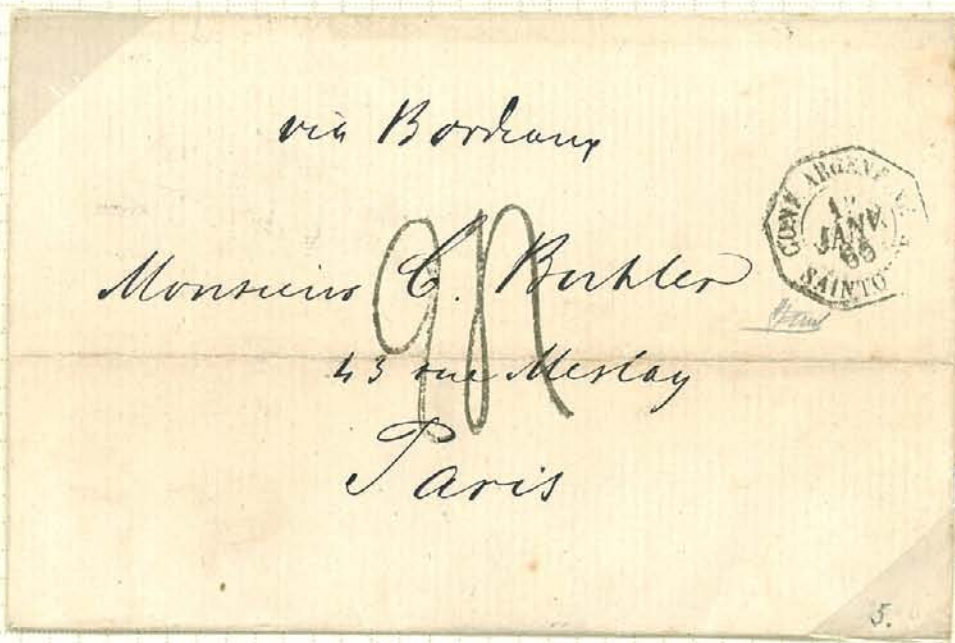 via Bordeaux
CONF. ARGENTINE
JANV.
SAINTO
Monsieur C. Buhler
43 rue Meslay
Paris
5.